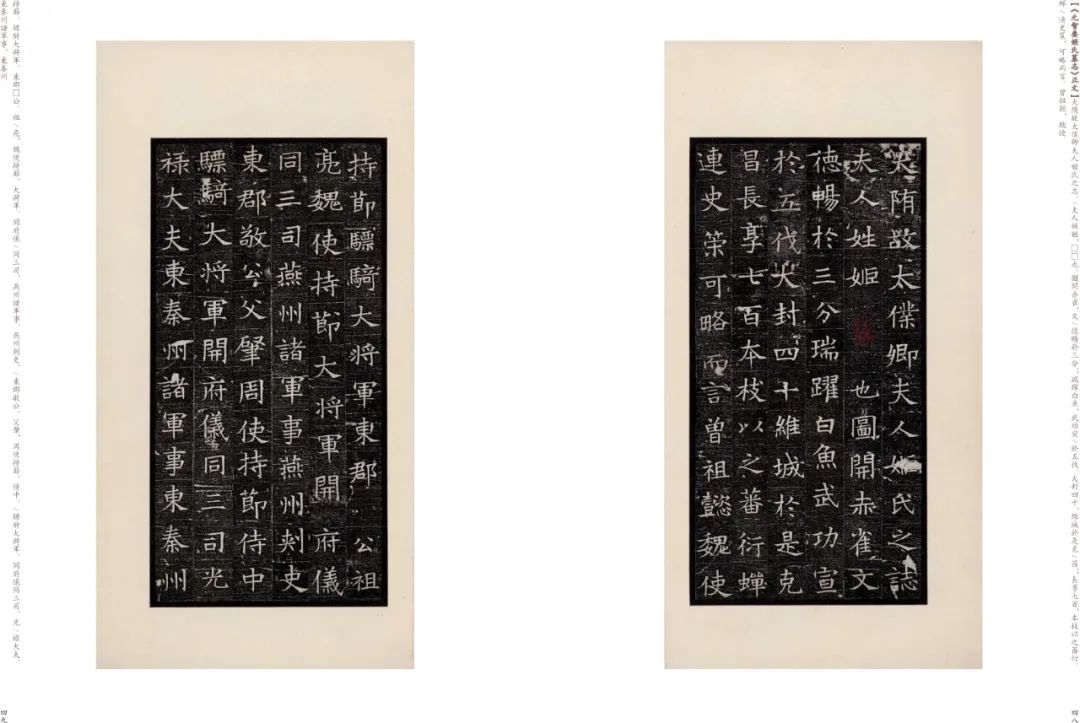 【《元智妻姬氏墓志》正文】大隋故太僕卿夫人姬氏之志。/夫人姓姬,□□也。圖開赤雀,文/德暢於三分;瑞躍白魚,武功宣/於五伐。大封四十,維城於是克/昌;長享七百,本枝以之蕃衍。
蟬/連史策,可略而言。曾祖懿,魏使
大隋故太僕卿夫人姬氏之誌
夫人姓姬 也圖開赤雀文
德暢於三分瑞躍白魚武功宣
於五伐大封四十維城於是克
昌長享七百本枝以之蕃衍蟬
連史策可略而言曾祖懿魏使
四八
持節驃騎大將軍東郡 公祖
亮魏使持節大將軍開府儀
同三司燕州諸軍事燕州刺史
東郡敬公父肇周使持節侍中
驃騎大將軍開府儀同三司光
祿大夫東秦州諸軍事東秦州
持節、驃騎大將軍、東郡□公。祖/亮,魏使持節、大將軍、開府儀/同三司、燕州諸軍事、燕州刺史、/東郡敬公。父肇,周使持節、侍中、/驃騎大將軍、開府儀同三司、光/祿大夫、
東秦州諸軍事、東秦州
四九